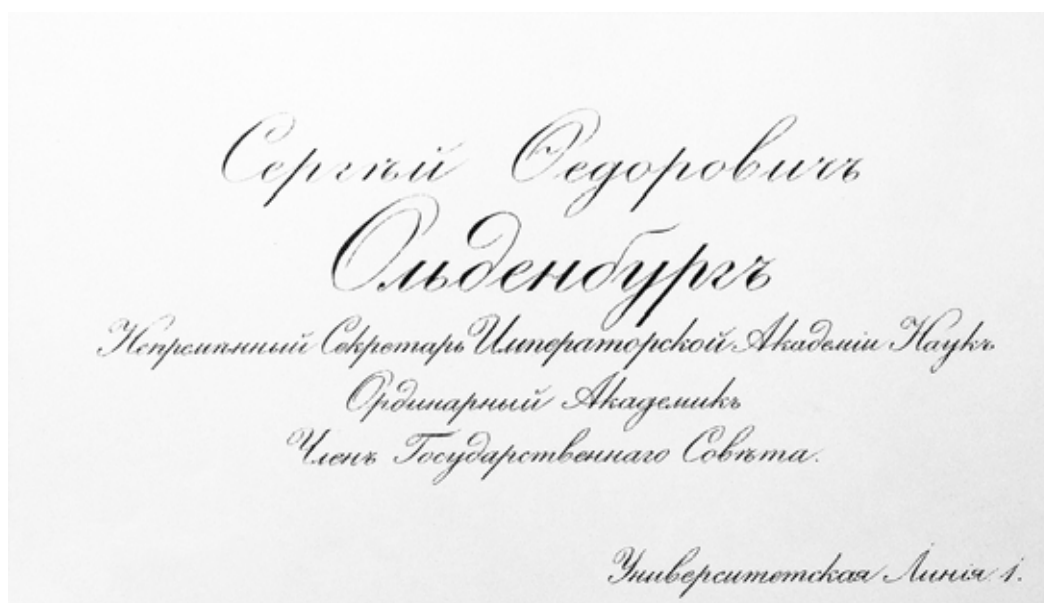 Сергѣй Ѳедоровичъ
Ольденбургъ
Непремѣнный Секретарь Императорской Академіи Наукъ
Ординарный Академикъ
Членъ Государственнаго Совѣта.
Университетская Линія 1.